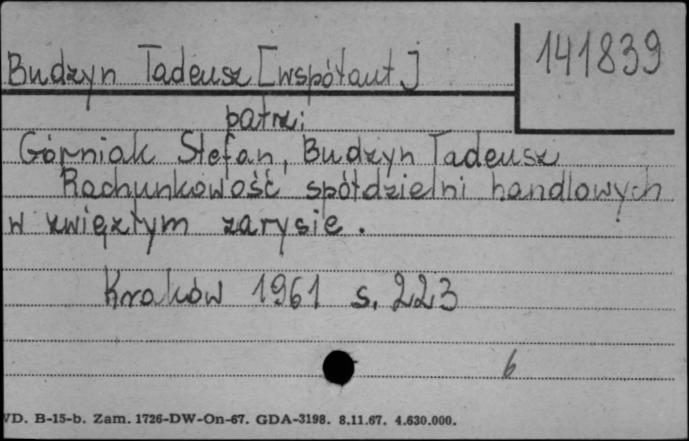 141839
Budzyn Tadeusz [współaut]
patrz:
Górniak Stefan, Budzyn Tadeusz
Rachunkowość spółdzielni handlowych
w zwięzłym zarysie.
Kraków 1961 s. 223
6
VD. B-15-b. Zam. 1726-DW-On-67. GDA-3198. 8.11.67. 4.630.000.